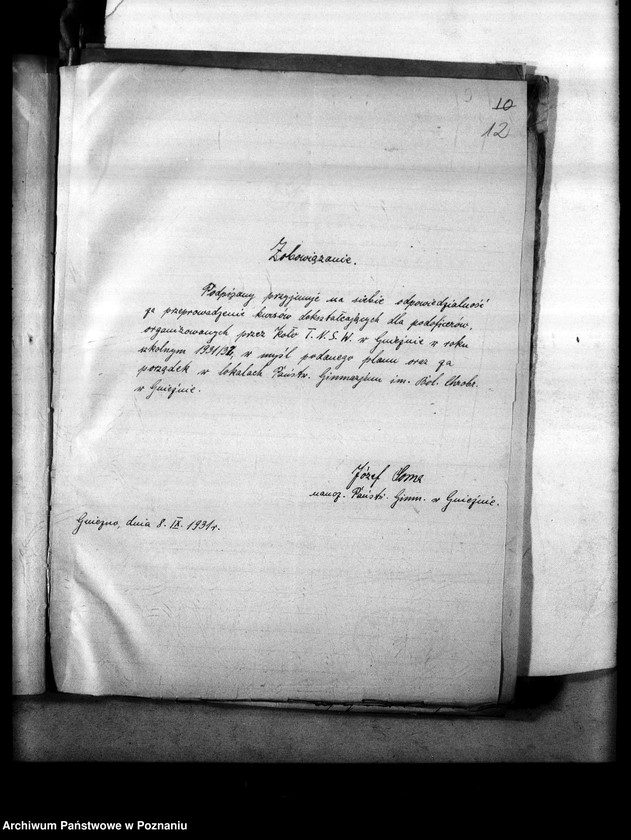 10
12
Zobowiązanie.
Podpisany przyjmuje na siebie odpowiedzialność
za przeprowadzenie kursów dokształcających dla podoficerów,
organizowanych przez Koło T. N. S. W. w Gnieźnie w roku
szkolnym 1931/32, w myśl podanego planu oraz za
porządek w lokalach Państw. Gimnazjum im. Bol. Chrobr.
w Gnieźnie.
Józef
naucz. Państ. Gimn. w Gnieźnie.
Gniezno, dnia 8. IX. 1931 r.
Archiwum Państwowe w Poznaniu